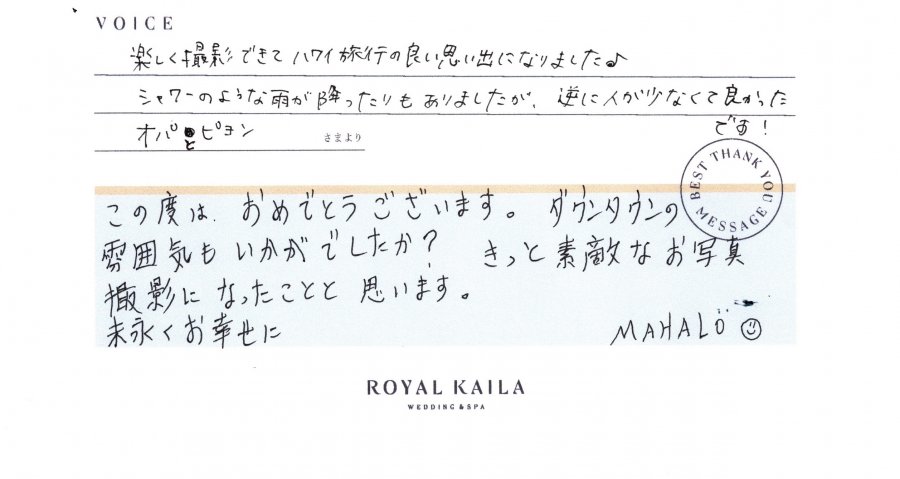 VOICE
楽しく撮影できて ハワイ旅行の良い思い出になりました♪
シャワーのような雨が降ったりもありましたが、逆に人が少なくて良かった
です!
オパとピヨン さまより
BEST THANK YOU MESSAGE
この度は、おめでとうございます。ダウンタウンの
雰囲気もいかがでしたか? きっと素敵なお写真
撮影になったことと思います。
末永くお幸せに MAHALO
ROYAL KAILA
WEDDING & SPA